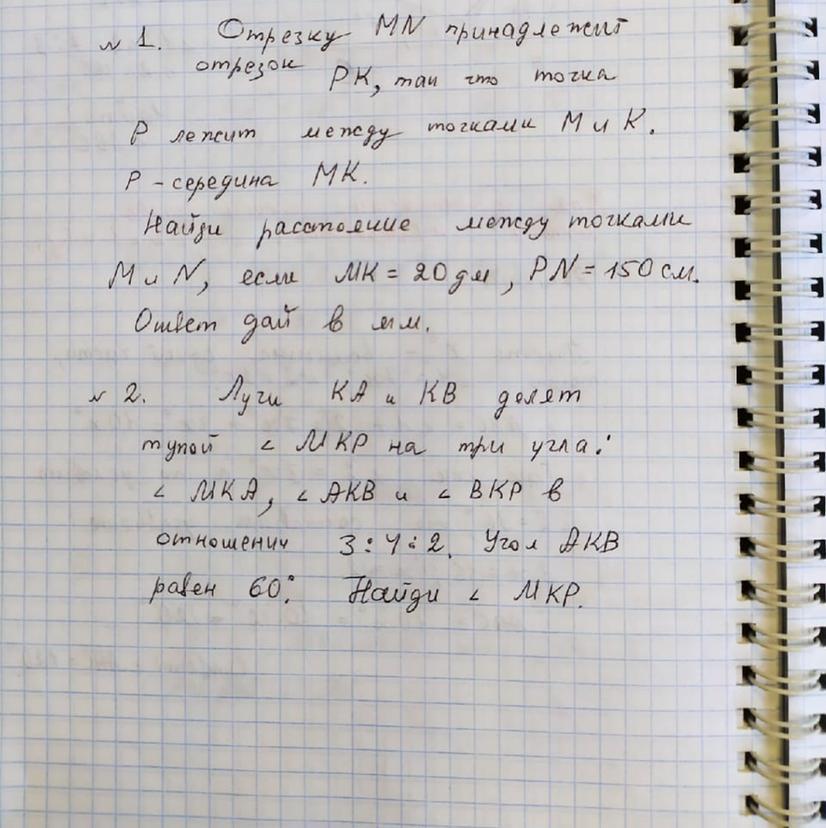 № 1. Отрезку MN принадлежит
отрезок PK, так что точка
P лежит между точками M и K.
P - середина MK.
Найди расстояние между точками
M и N, если MK = 20 дм, PN = 150 см.
Ответ дай в мм.
№ 2. Лучи KA и KB делят
тупой ∠ MKP на три угла:
∠ MKA, ∠ AKB и ∠ BKP в
отношении 3:4:2. Угол AKB
равен 60°. Найди ∠ MKP.